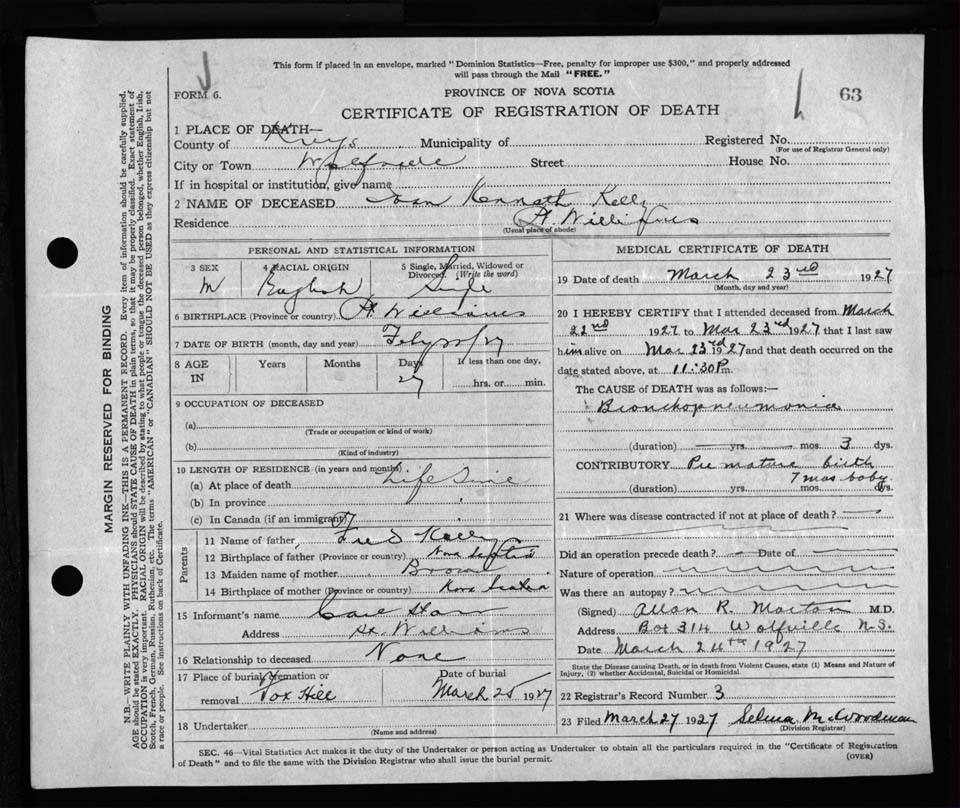 This form if placed in an envelope, marked "Dominion Statistics—Free, penalty for improper use $300," and properly addressed
will pass through the Mail "FREE."
FORM 6.
PROVINCE OF NOVA SCOTIA
63
CERTIFICATE OF REGISTRATION OF DEATH
1 PLACE OF DEATH—
County of Kings Municipality of Registered No.
(For use of Registrar General only)
City or Town Wolfville Street House No.
If in hospital or institution, give name
2 NAME OF DECEASED Kenneth Kelly
Residence Pt. Williams
(Usual place of abode)
PERSONAL AND STATISTICAL INFORMATION
3 SEX 4 RACIAL ORIGIN 5 Single, Married, Widowed or Divorced. (Write the word)
M English Single
6 BIRTHPLACE (Province or country) Pt. Williams
7 DATE OF BIRTH (month, day and year) Feby
8 AGE IN Years Months Days If less than one day,
27 hrs. or min.
9 OCCUPATION OF DECEASED
(a)
(Trade or occupation or kind of work)
(b)
(Kind of industry)
10 LENGTH OF RESIDENCE (in years and months)
(a) At place of death Life Time
(b) In province
(c) In Canada (if an immigrant)
Parents
11 Name of father, Fred Kelly
12 Birthplace of father (Province or country) Nova Scotia
13 Maiden name of mother Brown
14 Birthplace of mother (Province or country) Nova Scotia
15 Informant's name
Address Pt. Williams
16 Relationship to deceased None
17 Place of burial, cremation or removal Fox Hill Date of burial March 25 1927
18 Undertaker
(Name and address)
MEDICAL CERTIFICATE OF DEATH
19 Date of death March 23rd 1927
(Month, day and year)
20 I HEREBY CERTIFY that I attended deceased from March
22nd 1927 to Mar 23rd 1927 that I last saw
him alive on Mar 23rd 1927 and that death occurred on the
date stated above, at 11:30 P m.
The CAUSE of DEATH was as follows:—
Bronchopneumonia
(duration) — yrs. — mos. 3 dys.
CONTRIBUTORY Premature birth
7 mos baby
(duration) yrs. mos. dys.
21 Where was disease contracted if not at place of death? —
Did an operation precede death? — Date of —
Nature of operation
Was there an autopsy?
(Signed) Allan R. Morton M.D.
Address Box 314 Wolfville N.S.
Date March 24th 1927
State the Disease causing Death, or in death from Violent Causes, state (1) Means and Nature of
Injury, (2) whether Accidental, Suicidal or Homicidal.
22 Registrar's Record Number 3
23 Filed March 27 1927 Selina M. Woodman
(Division Registrar)
SEC. 46—Vital Statistics Act makes it the duty of the Undertaker or person acting as Undertaker to obtain all the particulars required in the "Certificate of Registration
of Death" and to file the same with the Division Registrar who shall issue the burial permit.
(OVER)
MARGIN RESERVED FOR BINDING
N.B.—WRITE PLAINLY WITH UNFADING INK—THIS IS A PERMANENT RECORD. Every item of information should be carefully supplied.
AGE should be stated EXACTLY. PHYSICIANS should STATE CAUSE OF DEATH in plain terms, so that it may be properly classified. Exact statement of
OCCUPATION is very important. RACIAL ORIGIN will be described by stating to what people or tongue the deceased person belonged, whether English, Irish,
Scotch, French, German, Russian, Ruthenian, etc. The terms "AMERICAN" or "CANADIAN" SHOULD NOT BE USED as they express citizenship but not
a race or people. See instructions on back of Certificate.